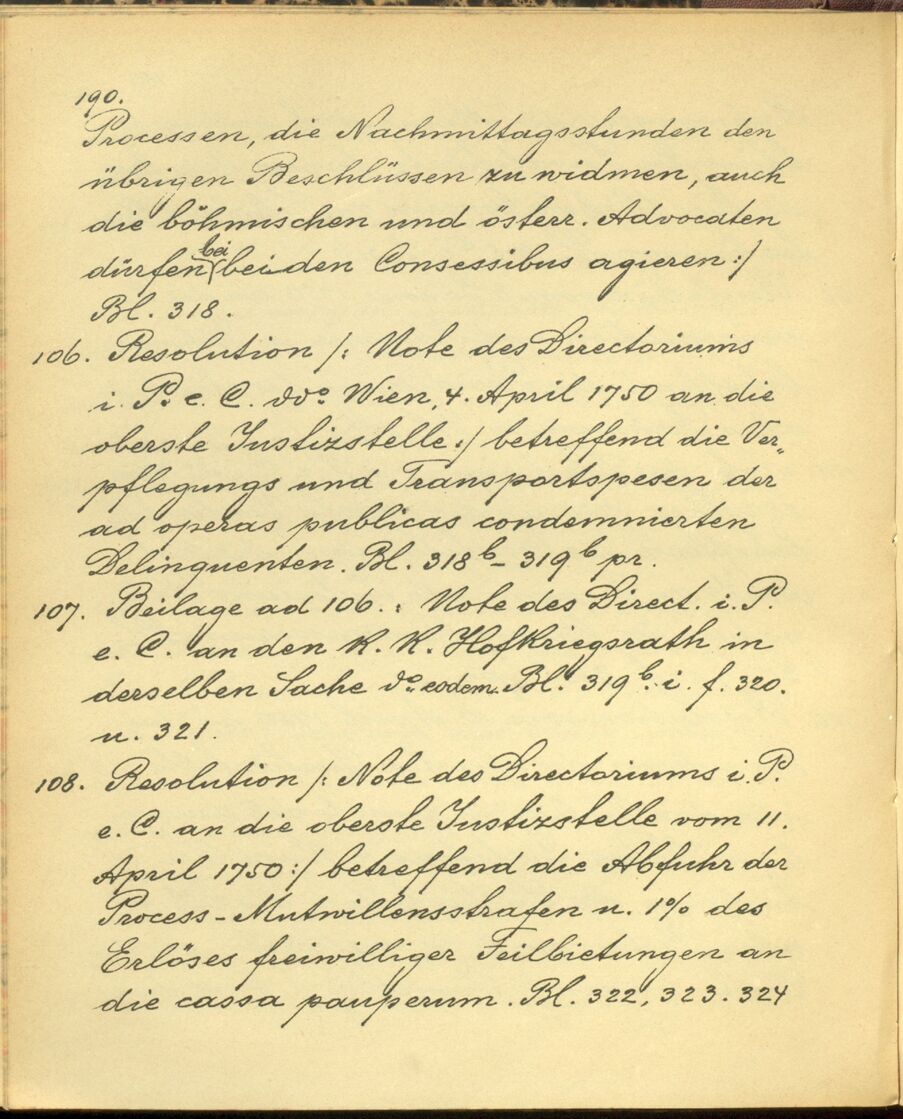 190.
Processen, die Nachmittagsstunden den
übrigen Beschlüssen zu widmen, auch
die böhmischen und österr. Advocaten
dürfen bei bei den Consessibus agieren :/
Bl. 318.
106. Resolution /: Note des Directoriums
i. P. e. C. ddo. Wien, 4. April 1750 an die
oberste Justizstelle :/ betreffend die Ver„
pflegungs und Transportspesen der
ad operas publicas condemnierten
Delinquenten. Bl. 318 b – 319 b pr.
107. Beilage ad 106. : Note des Direct. i. P.
e. C. an den K. K. Hofkriegsrath in
derselben Sache do. eodem. Bl. 319 b. i. f. 320.
u. 321.
108. Resolution /: Note des Directoriums i. P.
e. C. an die oberste Justizstelle vom 11.
April 1750 :/ betreffend die Abfuhr der
Process - Mutwillensstrafen u. 1% des
Erlöses freiwilliger Feilbietungen an
die cassa pauperum. Bl. 322, 323. 324